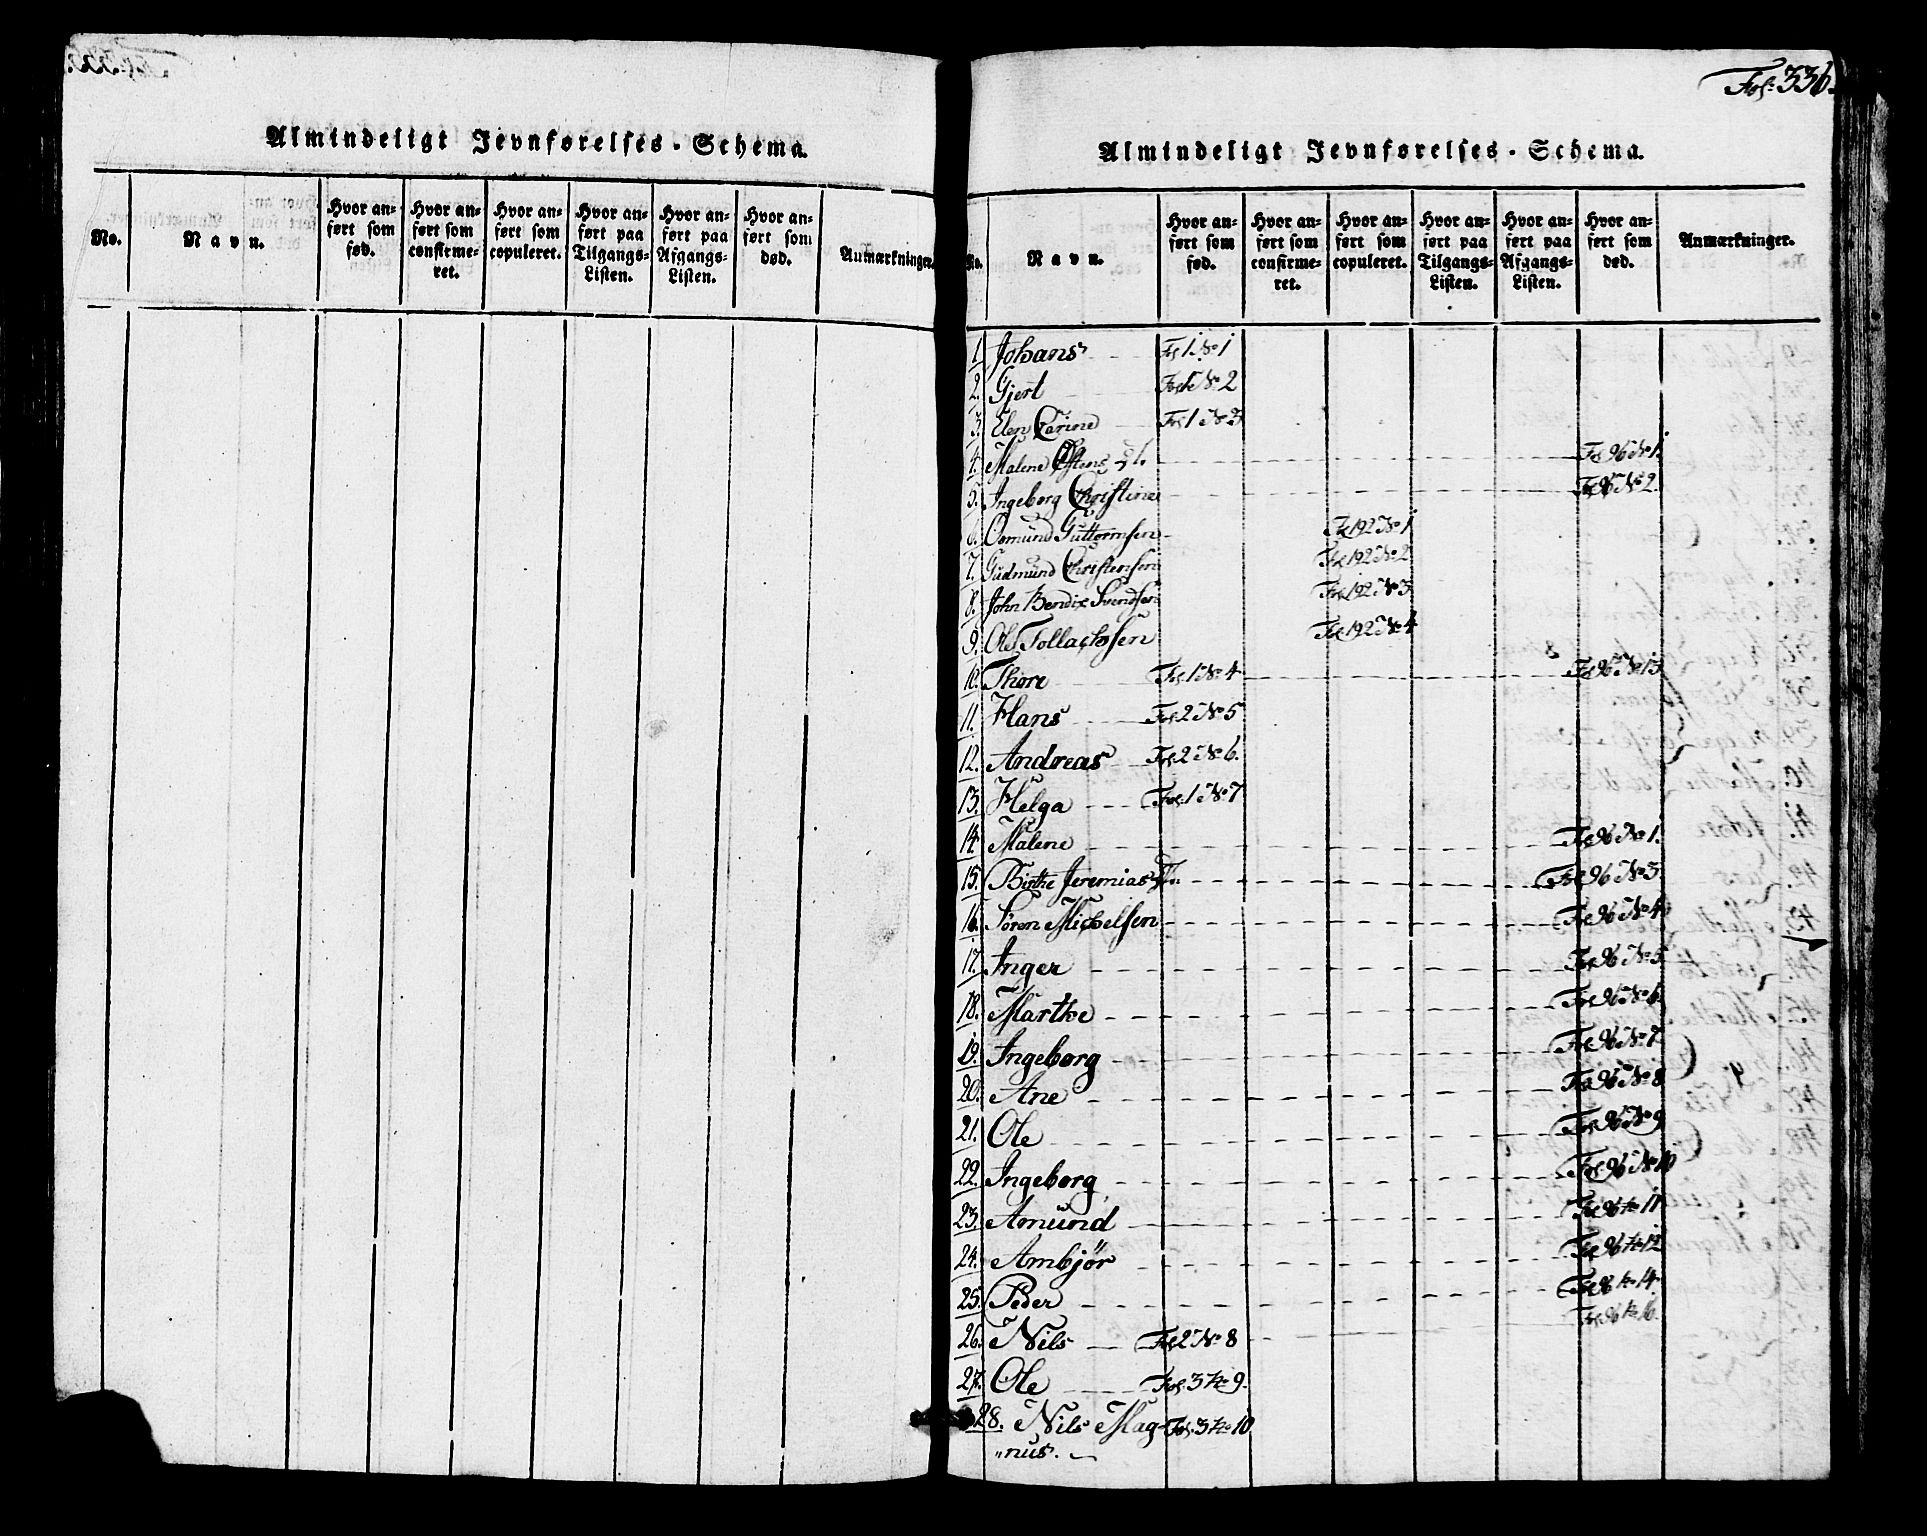 Almindeligt Jevnførelses-Schema.
No. Navn. Hvor anført som fød. Hvor anført som confirmeret. Hvor anført som copuleret. Hvor anført paa Tilgangs-Listen. Hvor anført paa Afgangs-Listen. Hvor anført som død. Anmærkninger.
Fol: 336.
Almindeligt Jevnførelses-Schema.
No. Navn. Hvor anført som fød. Hvor anført som confirmeret. Hvor anført som copuleret. Hvor anført paa Tilgangs-Listen. Hvor anført paa Afgangs-Listen. Hvor anført som død. Anmærkninger.
1. Johans Fol 1 No 1
2. Gjert Fol 1 No 2
3. Elen Carine Fol 1 No 3
4. Malene Fol 96 No 1.
5. Ingeborg Christine Fol 96 No 2.
6. Osmund Guttormsen Fol 192 No 1
7. Gudmund Christensen Fol 192 No 2
8. John Bendix Svendsen Fol 192 No 3
9. Ole Tollachsen Fol 192 No 4
10. Thore Fol. 1 No 4 Fol 96 No 13
11. Hans Fol. 2 No 5
12. Andreas Fol. 2 No 6.
13. Helga Fol. 1 No 7
14. Malene Fol 96 No 1.
15. Birthe Jeremias Fol 96 No 3
16. Søren Michelsen Fol 96 No 4
17. Inger Fol 96 No 5
18. Marthe Fol 96 No 6.
19. Ingeborg Fol 96 No 7
20. Ane Fol 96 No 8
21. Ole Fol 96 No 9
22. Ingeborg Fol 96 No 10
23. Amund Fol 96 No 11
24. Ambjör Fol 96 No 12
25. Peder Fol 96 No 14.
26. Nils Fol 2 No 8 Fol 96 No 16.
27. Ole Fol. 3 No 9.
28. Nils Mag- Fol. 3 No 10
"nus.